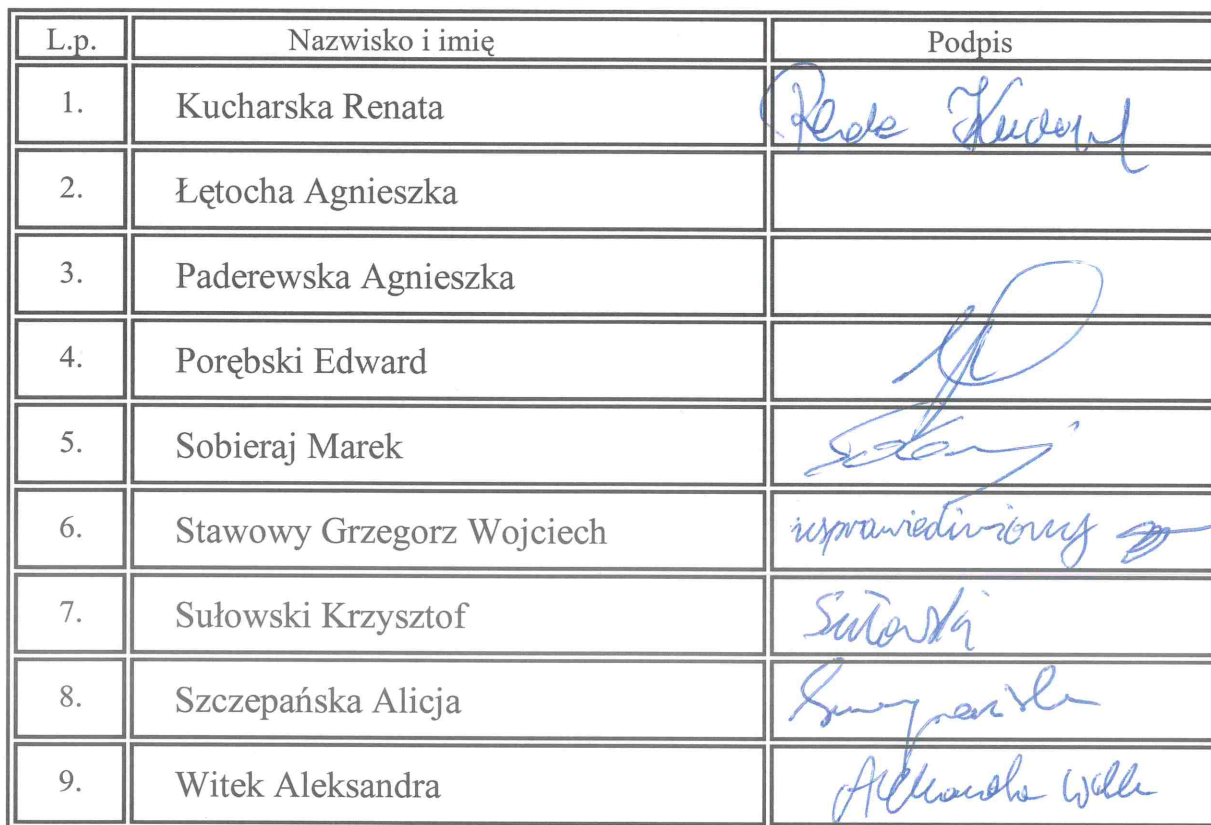 L.p. Nazwisko i imię Podpis
1. Kucharska Renata
2. Łętocha Agnieszka
3. Paderewska Agnieszka
4. Porębski Edward
5. Sobieraj Marek
6. Stawowy Grzegorz Wojciech usprawiedliwiony
7. Sułowski Krzysztof Sułowski
8. Szczepańska Alicja
9. Witek Aleksandra Aleksandra Witek